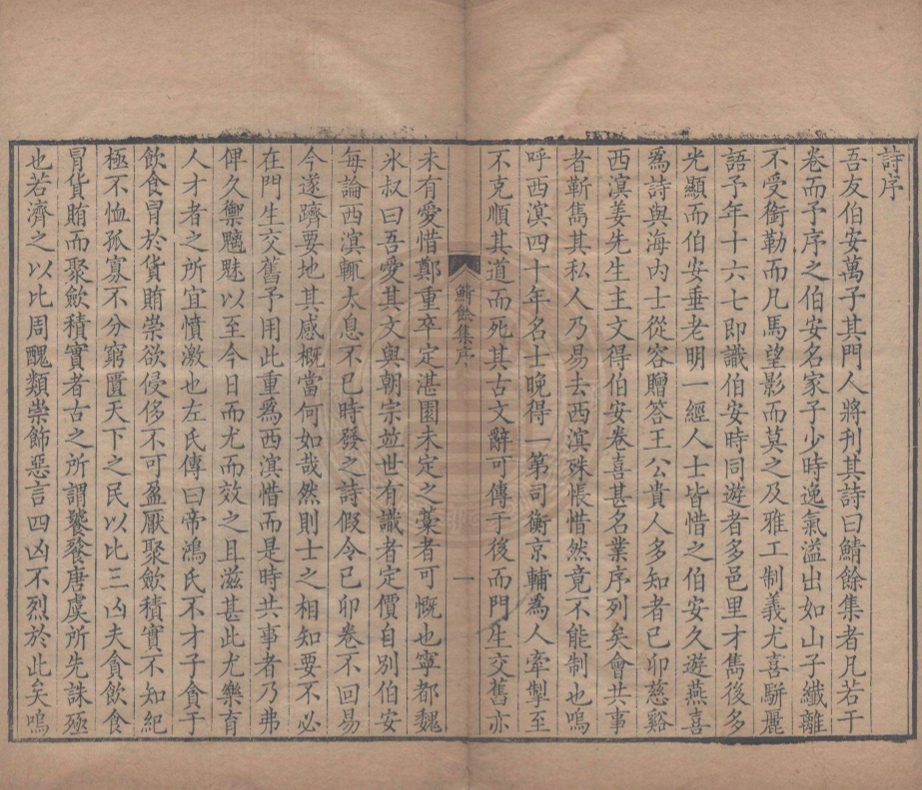 詩序
吾友伯安萬子其門人將刊其詩曰鯖餘集者凡若干
卷而予序之伯安名家子少時逸氣溢出如山子纖離
不受銜勒而凡馬望影而莫之及雅工制義尤喜駢麗
語予年十六七即識伯安時同遊者多邑里才雋後多
光顯而伯安垂老明一經人士皆惜之伯安久遊燕喜
爲詩與海內士從容贈答王公貴人多知者己卯慈谿
西溟姜先生主文得伯安卷喜甚名業序列矣會共事
者靳雋其私人乃易去西溟殊悵惜然竟不能制也嗚
呼西溟四十年名士晚得一第司衡京輔爲人牽掣至
不克順其道而死其古文辭可傳于後而門生交舊亦
鯖餘集序
一
未有愛惜鄭重卒定湛園未定之藁者可慨也寧都魏
氷叔曰吾愛其文與朝宗並世有識者定價自別伯安
每論西溟輒太息不已時發之詩假令己卯卷不回易
今遂躋要地其感概當何如哉然則士之相知要不必
在門生交舊予用此重爲西溟惜而是時共事者乃弗
俾久禦魑魅以至今日而尤而效之且滋甚此尤樂育
人才者之所宜憤激也左氏傳曰帝鴻氏不才子貪于
飲食冒於貨賄崇欲侵侈不可盈厭聚歛積實不知紀
極不恤孤寡不分窮匱天下之民以比三凶夫貪飲食
冒貨賄而聚歛積實者古之所謂饕餮唐虞所先誅殛
也若濟之以比周醜類崇飾惡言四凶不烈於此矣嗚